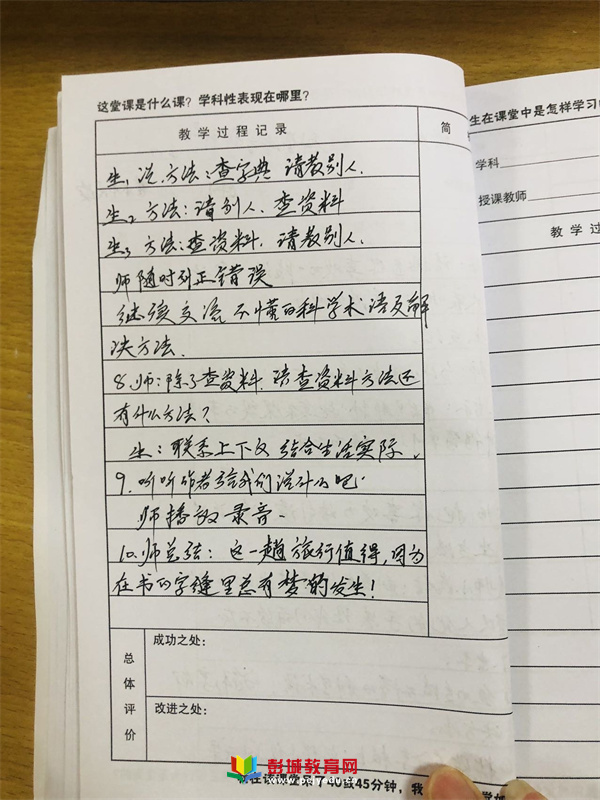 这堂课是什么课？学科性表现在哪里？
教学过程记录
简
生1 说方法：查字典 请教别人.
生2 方法：请别人、查资料
生3 方法：查资料、请教别人.
师随时纠正错误
继续交流不懂的科学术语及解
决方法.
8.师：除了查资料、 查资料方法还
有什么方法？
生：联系上下文 结合生活实际.
9.听听作者给我们说什么吧.
师播放录音.
10.师总结：这一趟旅行值得,因为
在书的字缝里总有梦的发生！
总体评价
成功之处：
改进之处：
生在课堂中是怎样学习
学科
授课教师
教学过
彭城教育网
40或45分钟，我